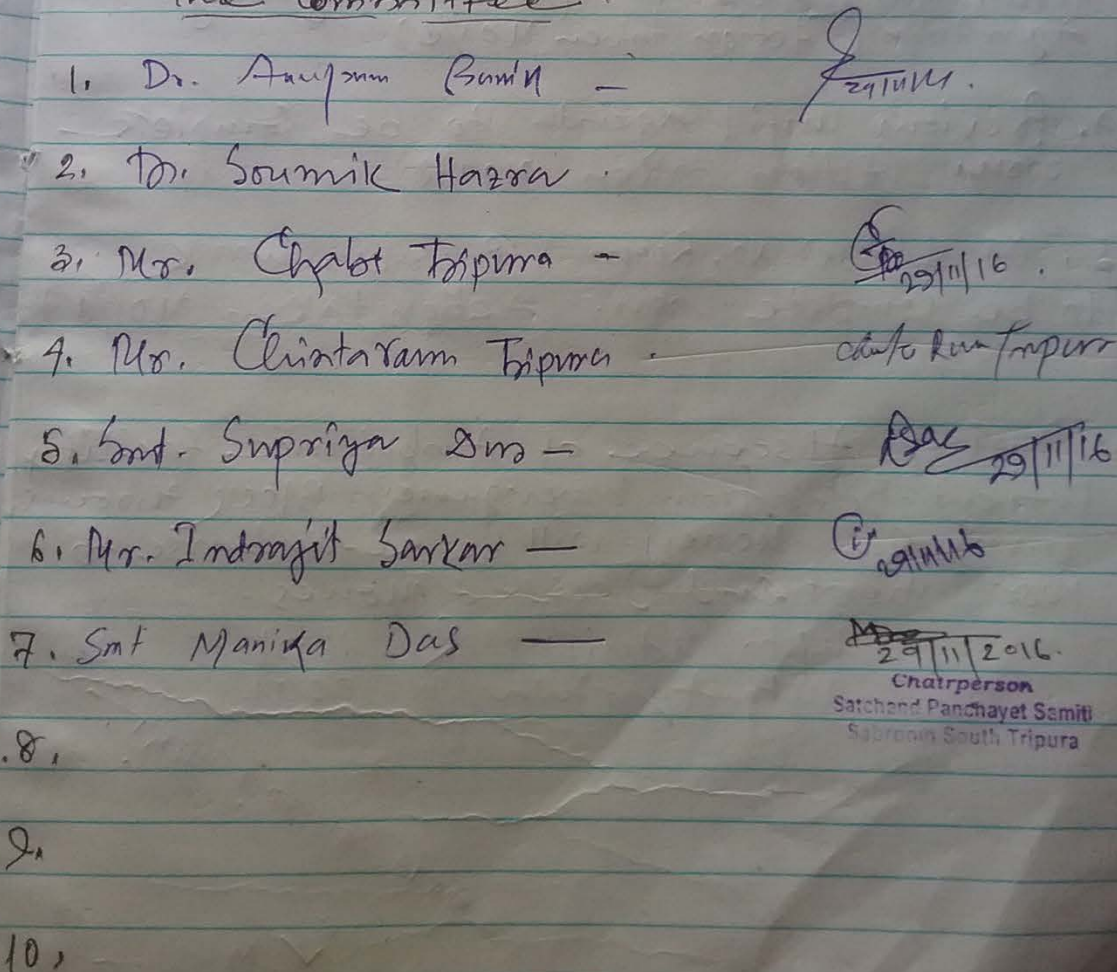 the committee
1. Dr. Anupam - 29/11/16.
2. Dr. Soumik Hazra
3. Mr. Tripura - 29/11/16.
4. Mr. Chintaram Tripura - Ram Tripura
5. Smt. Supriya Das - Das 29/11/16
6. Mr. Indrajit Sarkar - 29/11/16
7. Smt Manika Das - 29/11/2016.
Chairperson
Satchand Panchayet Samiti
Sabroom South Tripura
8.
9.
10,